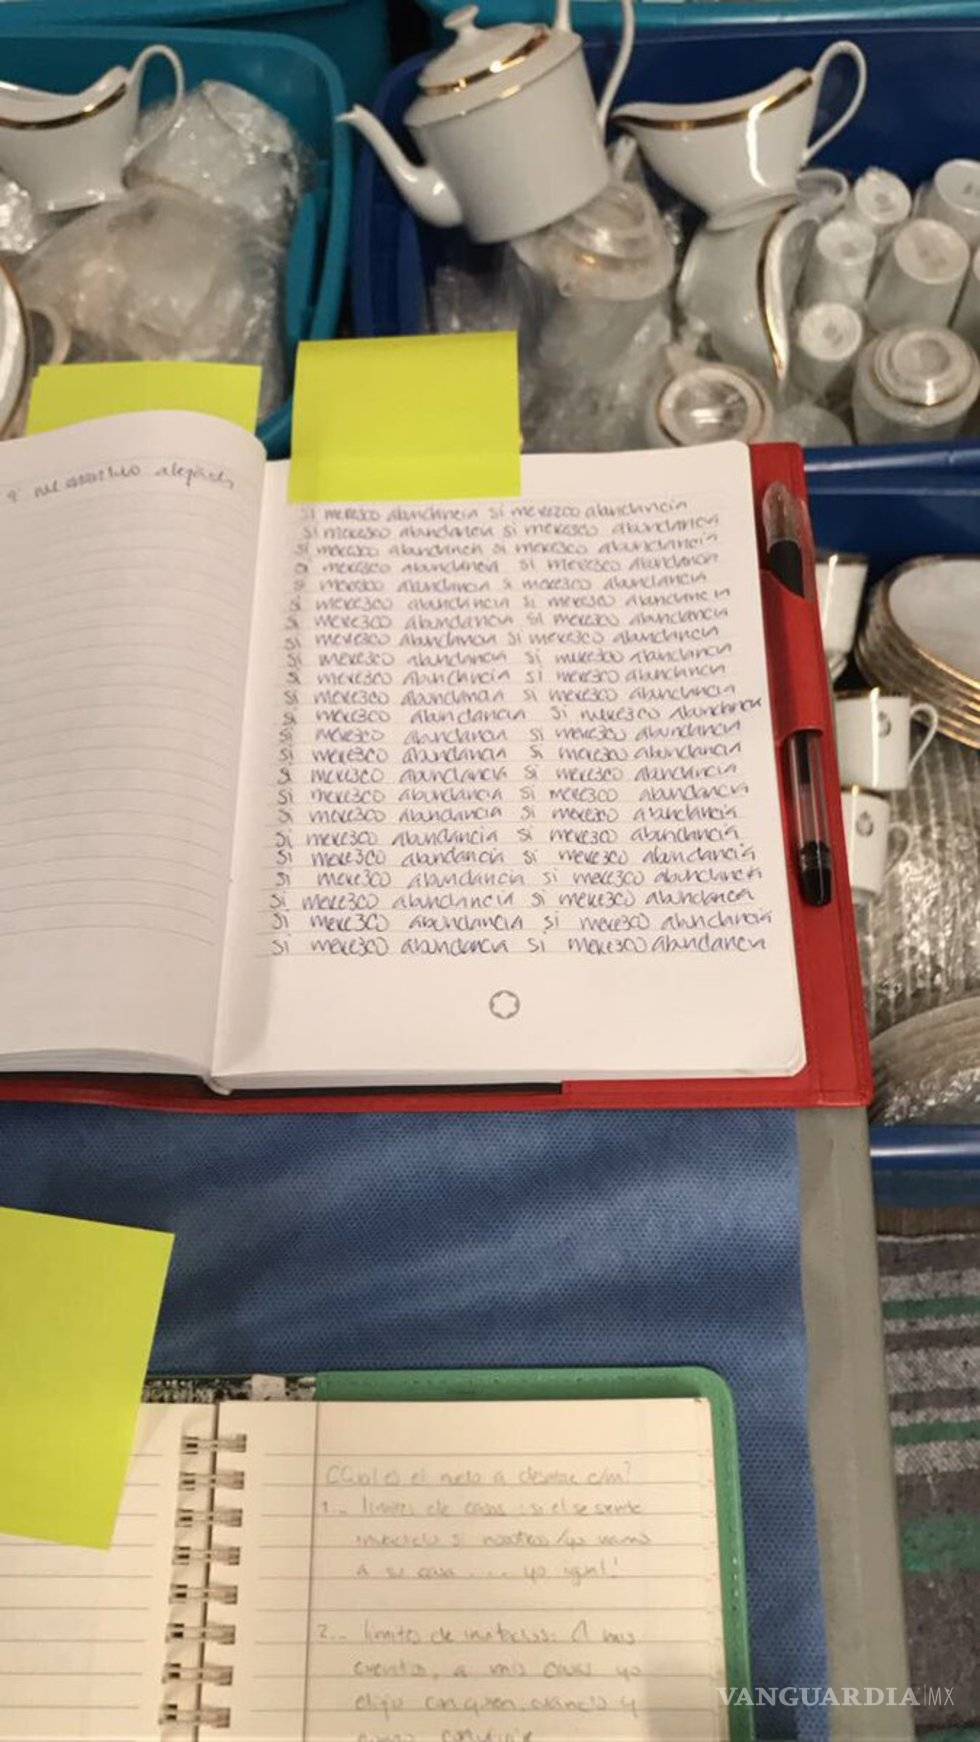 si merezco abundancia si merezco abundancia
si merezco abundancia si merezco abundancia
si merezco abundancia si merezco abundancia
si merezco abundancia si merezco abundancia
si merezco abundancia si merezco abundancia
si merezco abundancia si merezco abundancia
si merezco abundancia si merezco abundancia
si merezco abundancia si merezco abundancia
si merezco abundancia si merezco abundancia
si merezco abundancia si merezco abundancia
si merezco abundancia si merezco abundancia
si merezco abundancia si merezco abundancia
si merezco abundancia si merezco abundancia
si merezco abundancia si merezco abundancia
si merezco abundancia si merezco abundancia
si merezco abundancia si merezco abundancia
si merezco abundancia si merezco abundancia
si merezco abundancia si merezco abundancia
si merezco abundancia si merezco abundancia
si merezco abundancia si merezco abundancia
si merezco abundancia si merezco abundancia
si merezco abundancia si merezco abundancia
si merezco abundancia si merezco abundancia
¿Cual es el a
1.- limites de casas : si el se siente
nosotros/yo vamos
a su casa .... yo igual!
2.- limites de A mis
eventos, a mis casas yo
elijo con quien, cuando y
como convivir
VANGUARDIA|MX